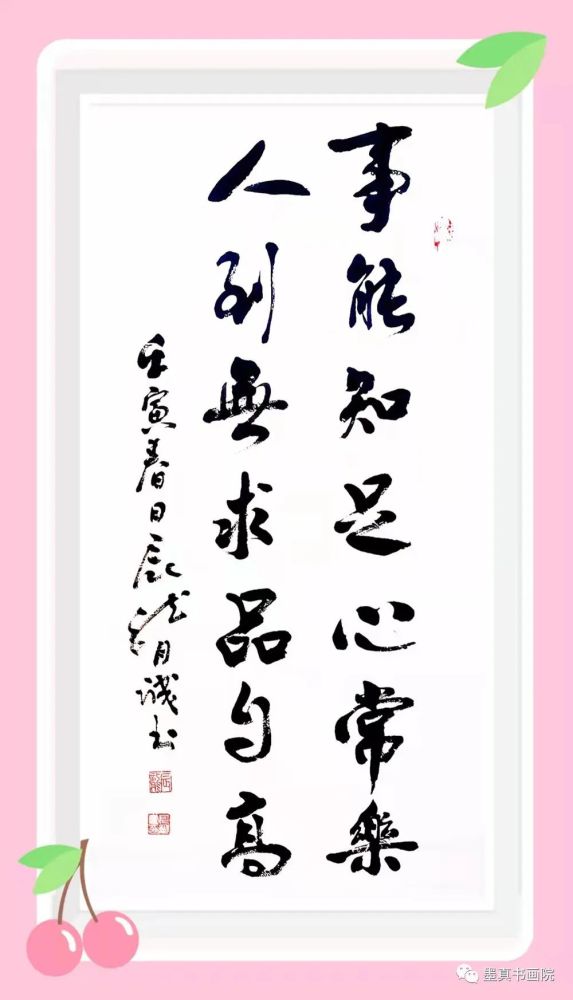 事能知足心常樂
人到無求品自高
壬寅春日辰龍月誠书
墨真书画院